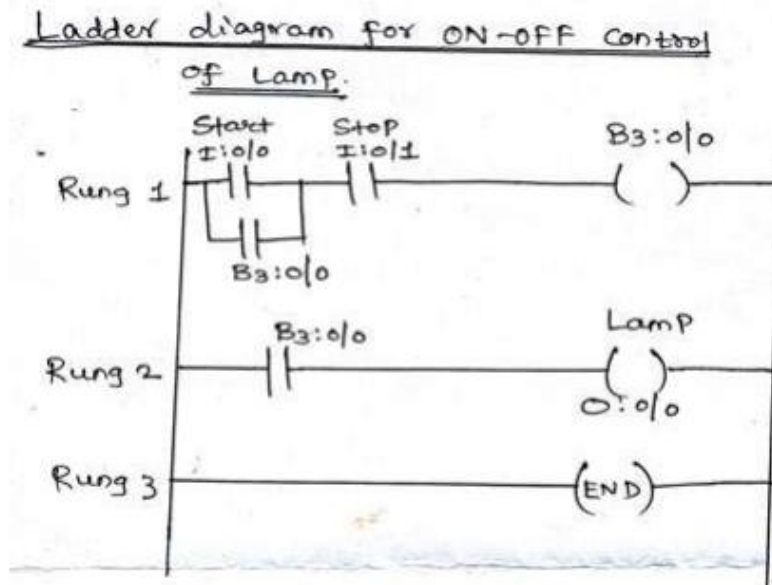 Ladder diagram for ON-OFF control
of Lamp.
Start Stop
I:0/0 I:0/1 B3:0/0
Rung 1
B3:0/0
B3:0/0 Lamp
Rung 2
O:0/0
Rung 3 (END)